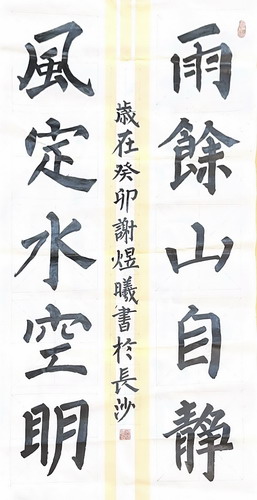 雨餘山自静
風定水空明
歲在癸卯謝煜曦書於長沙